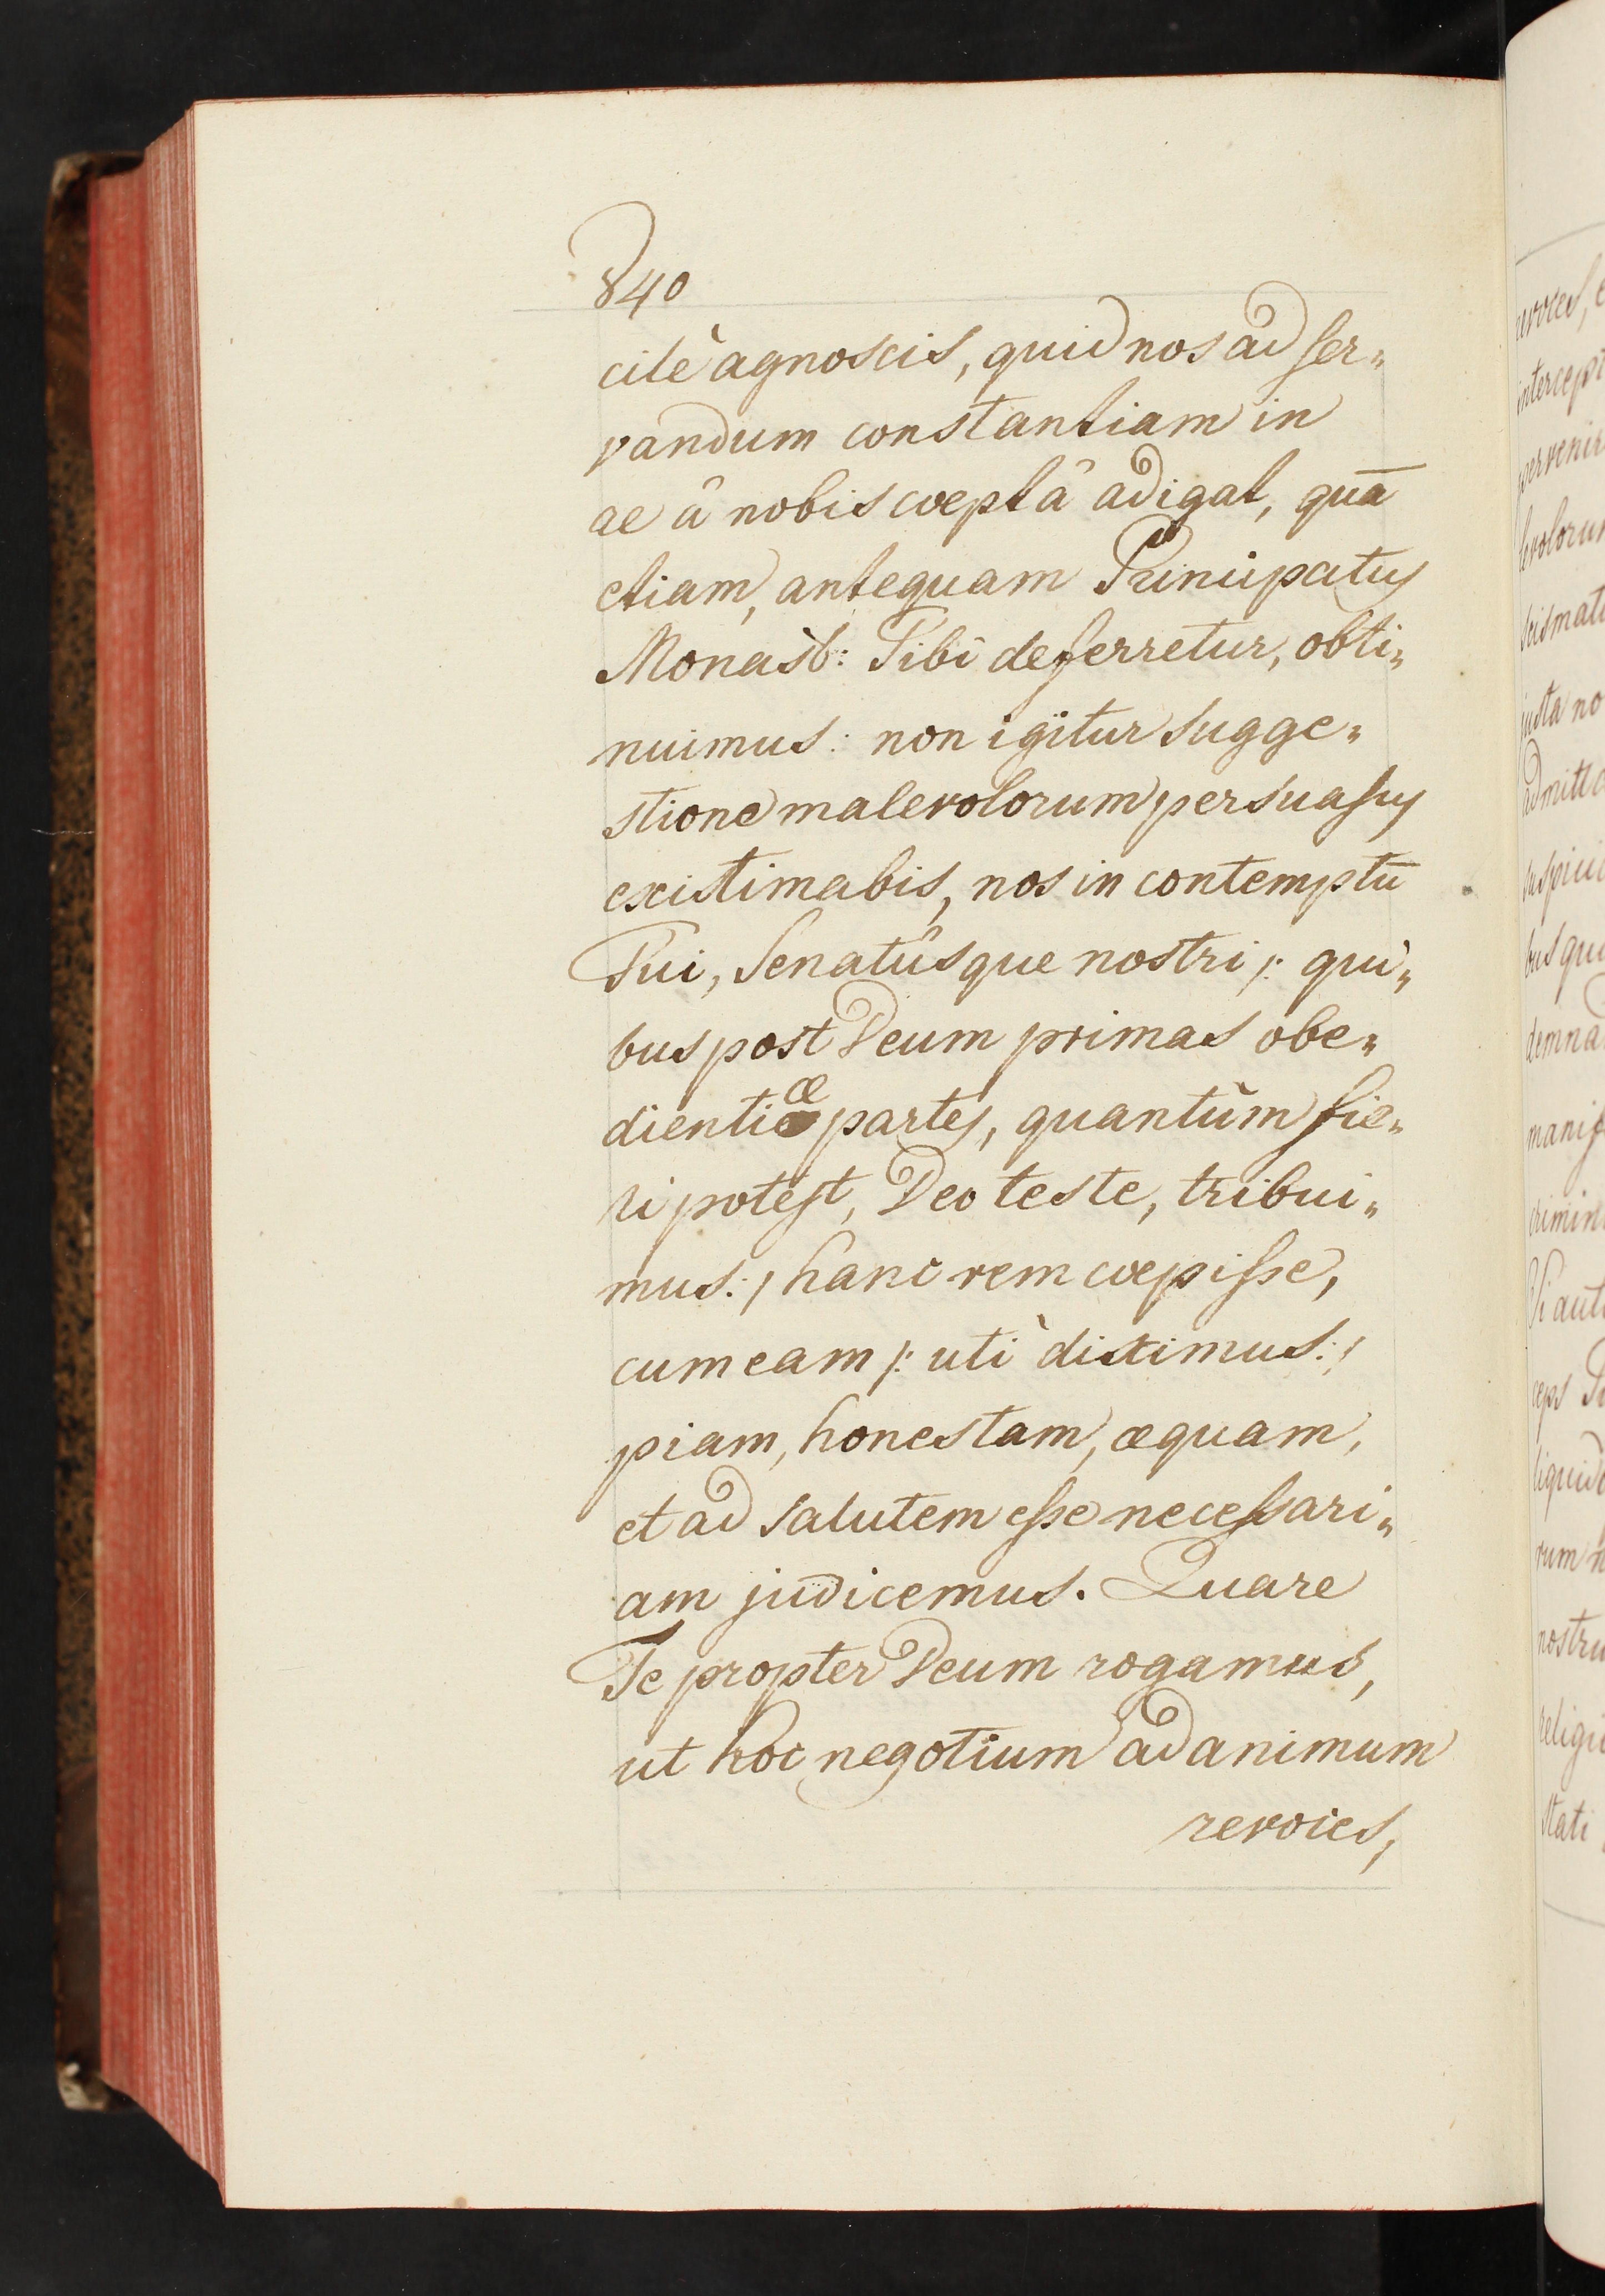 840
cilè agnoscis, quid nos ad ser„
vandum constantiam in
ae â nobis coeptâ adigat, quā
etiam, antequam Principatus
Monast: Tibi deferretur, obti„
nuimus: non igitur sugge„
stione malevolorum persuasus
existimabis, nos in contemptū
Tui, Senatûsque nostri /: qui„
bus post Deum primas obe„
dientiæ partes, quantùm fie„
ri potest, Deo teste, tribui„
mus :/ hanc rem coepisse,
cum eam /: uti diximus :/
piam, honestam, æquam,
et ad salutem esse necessari„
am judicemus. Quare
Te propter Deum rogamus,
ut hoc negotium ad animum
revoces,
revoces,
intercept
pervenir
levolorum
scismati
justa no
admitta
suspici
bus qui
demna
manif
crimin
Si aut
ceps
liquid
rum n
nostru
religi
stati